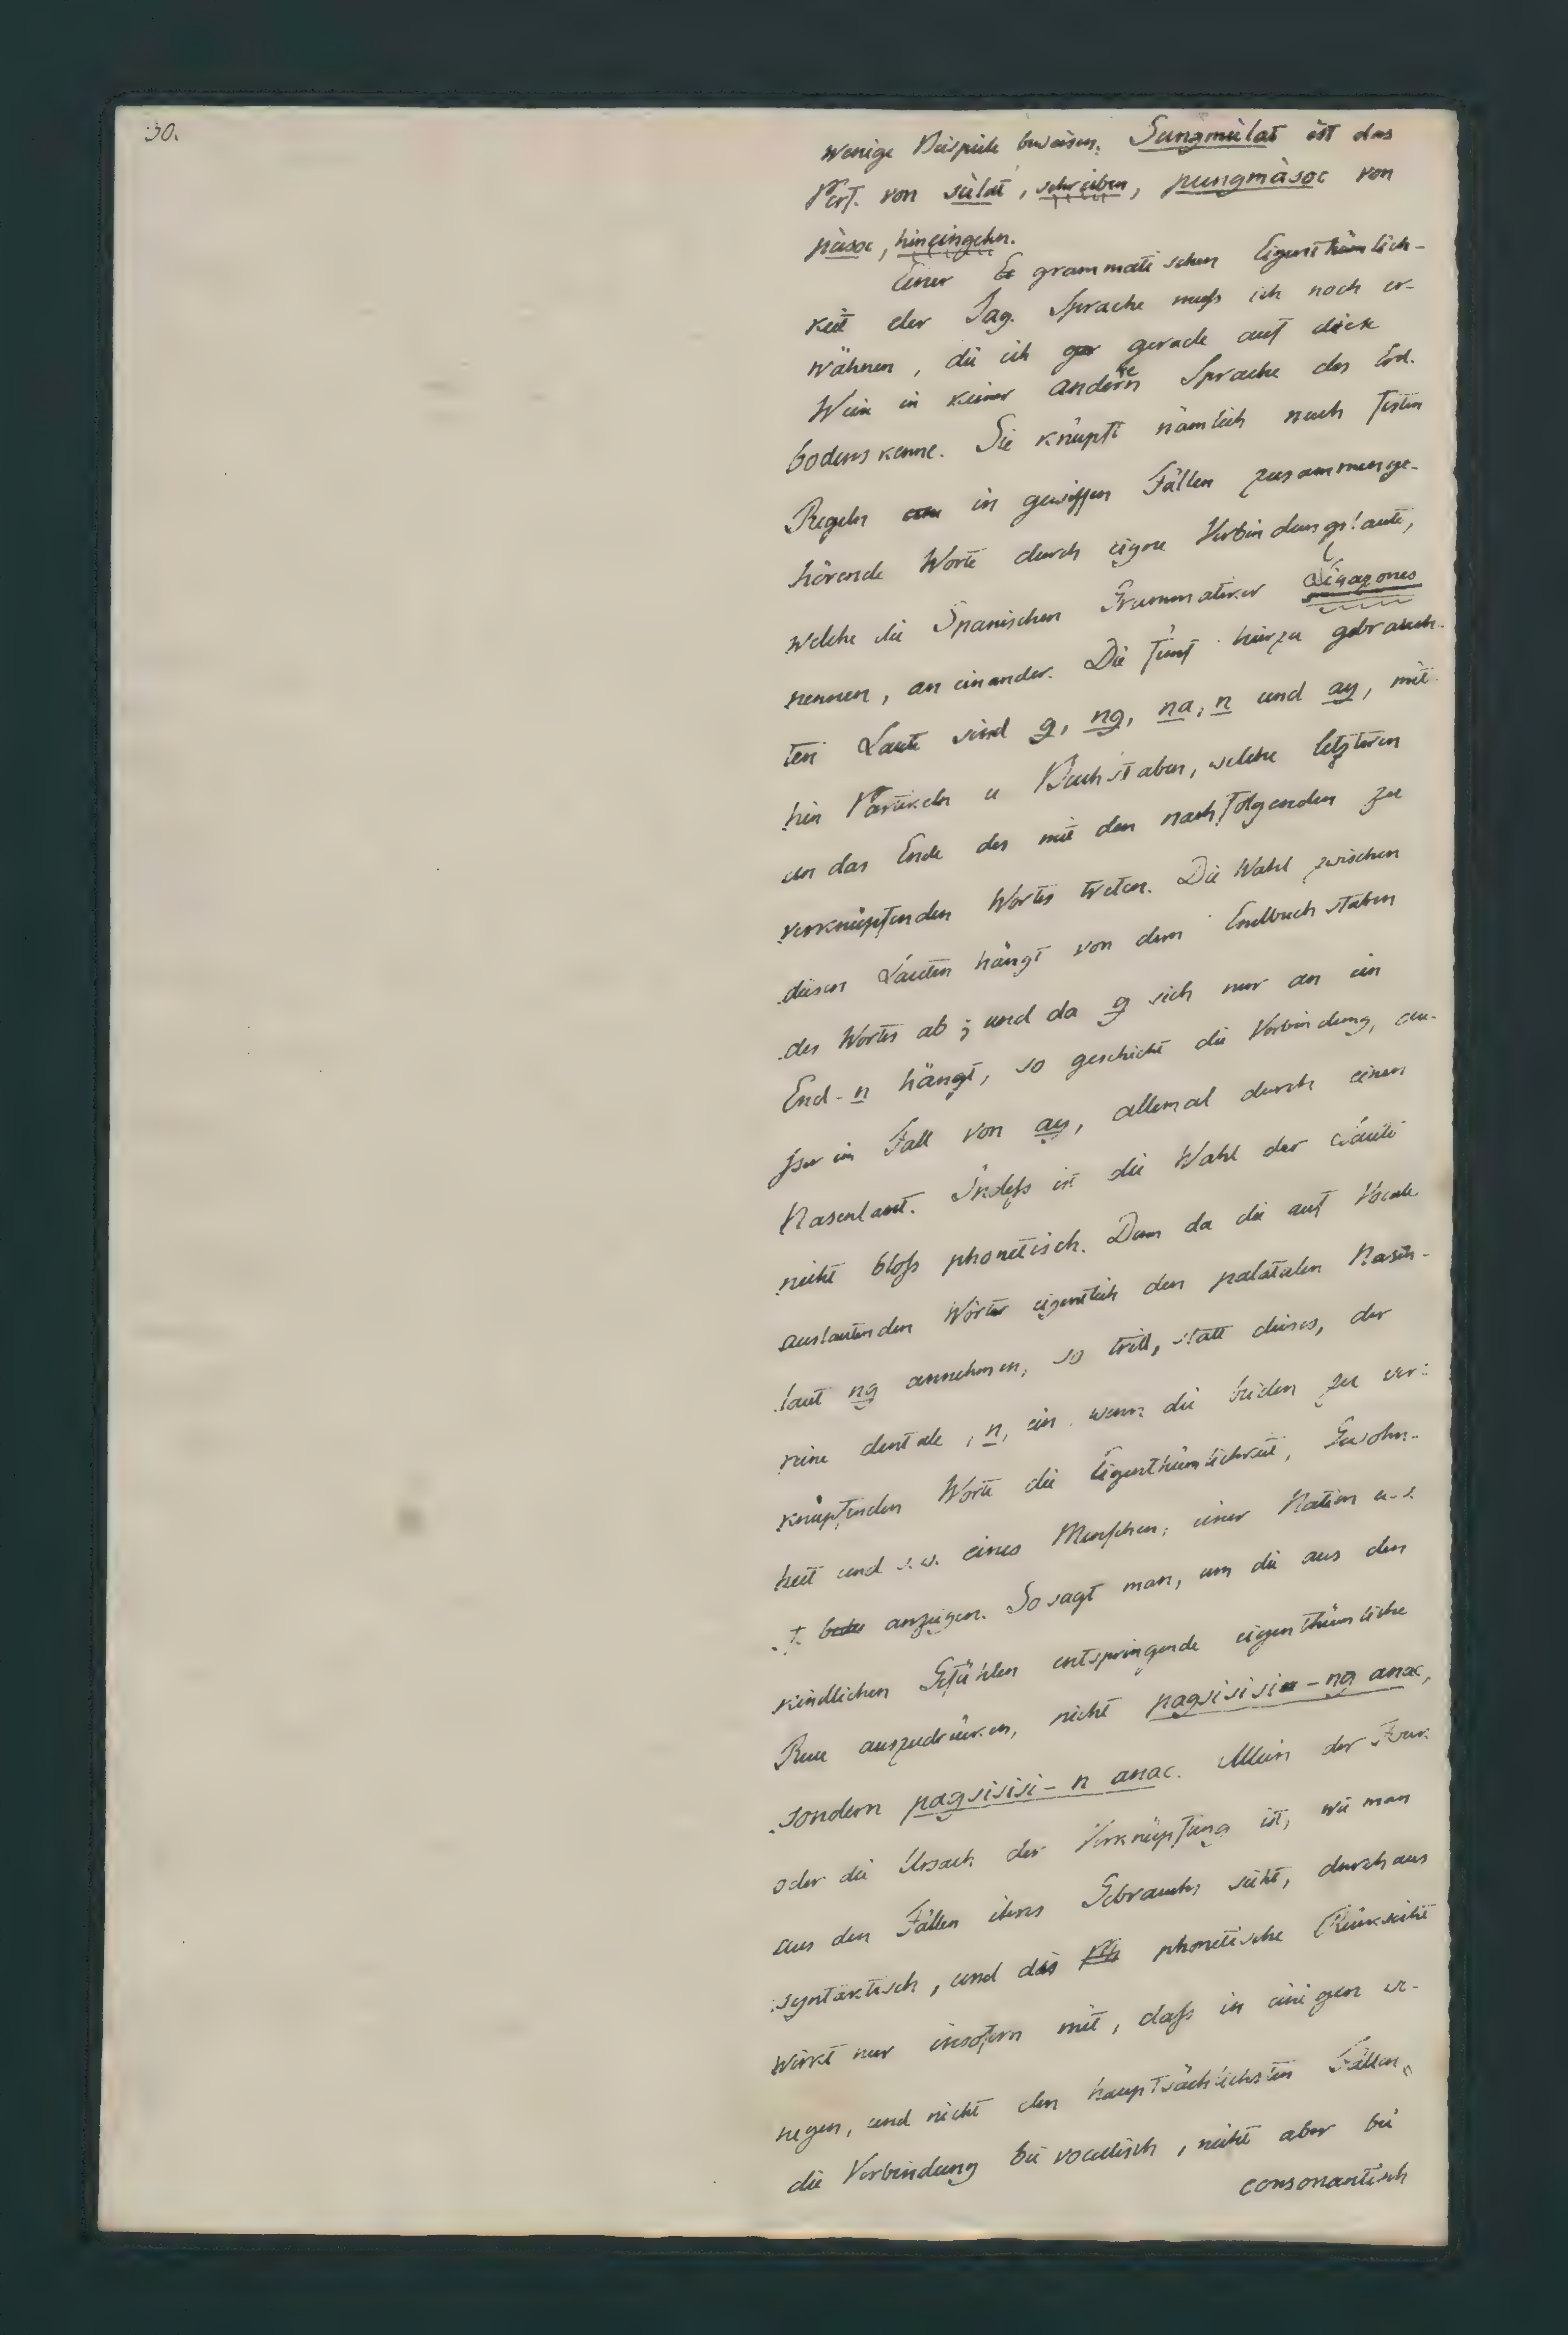 30.
wenige Beispiele beweisen. Sungmùlat ist das
Perf. von sùlat, schreiben, pungmàsoc von
pàsoc, hineingehn.
Einer E grammatischen Eigenthümlich-
keit der Tag. Sprache muß ich noch er-
wähnen, die ich gar gerade auf diese
Weise in keiner andern Sprache des Erd-
bodens kenne. Sie knüpft nämlich nach festen
Regeln in gewissen Fällen zusammenge-
hörende Worte durch eigne Verbindungslaute,
welche die Spanischen Grammatiker ligazones
nennen, an einander. Die fünf hierzu gebrauch-
ten Laute sind g, ng, na, n und ay, mit-
hin Partikeln u Buchstaben, welche letzteren
an das Ende des mit dem nachfolgenden zu
verknüpfenden Wortes treten. Die Wahl zwischen
diesen Lauten hängt von dem Endbuchstaben
des Wortes ab; und da g sich nur an ein
End-n hängt, so geschieht die Verbindung, au-
ßer im Fall von ay, allemal durch einen
Nasenlaut. Indeß ist die Wahl der Laute
nicht bloß phonetisch. Denn da die auf Vocale
auslautenden Wörter eigentlich den palatalen Nasen-
laut ng annehmen, so tritt, statt dieses, der
reine dentale, n, ein wenn die beiden zu ver-
knüpfenden Worte die Eigenthümlichkeit, Gewohn-
heit und s. w. eines Menschen, einer Nation u. s.
f. anzeigen. So sagt man, um die aus den
kindlichen Gefühlen entspringende eigenthümliche
Reue auszudrücken, nicht pagsisisi-ng anac,
sondern pagsisisi-n anac. Allein der
oder die Ursach der Verknüpfung ist, wie man
aus den Fällen ihres Gebrauchs sieht, durchaus
syntaktisch, und die phonetische Rücksicht
wirkt nur insofern mit, daß in einigen we-
nigen, und nicht den hauptsächlichsten Fällen,
die Verbindung bei vocalisch, nicht aber bei
consonantisch